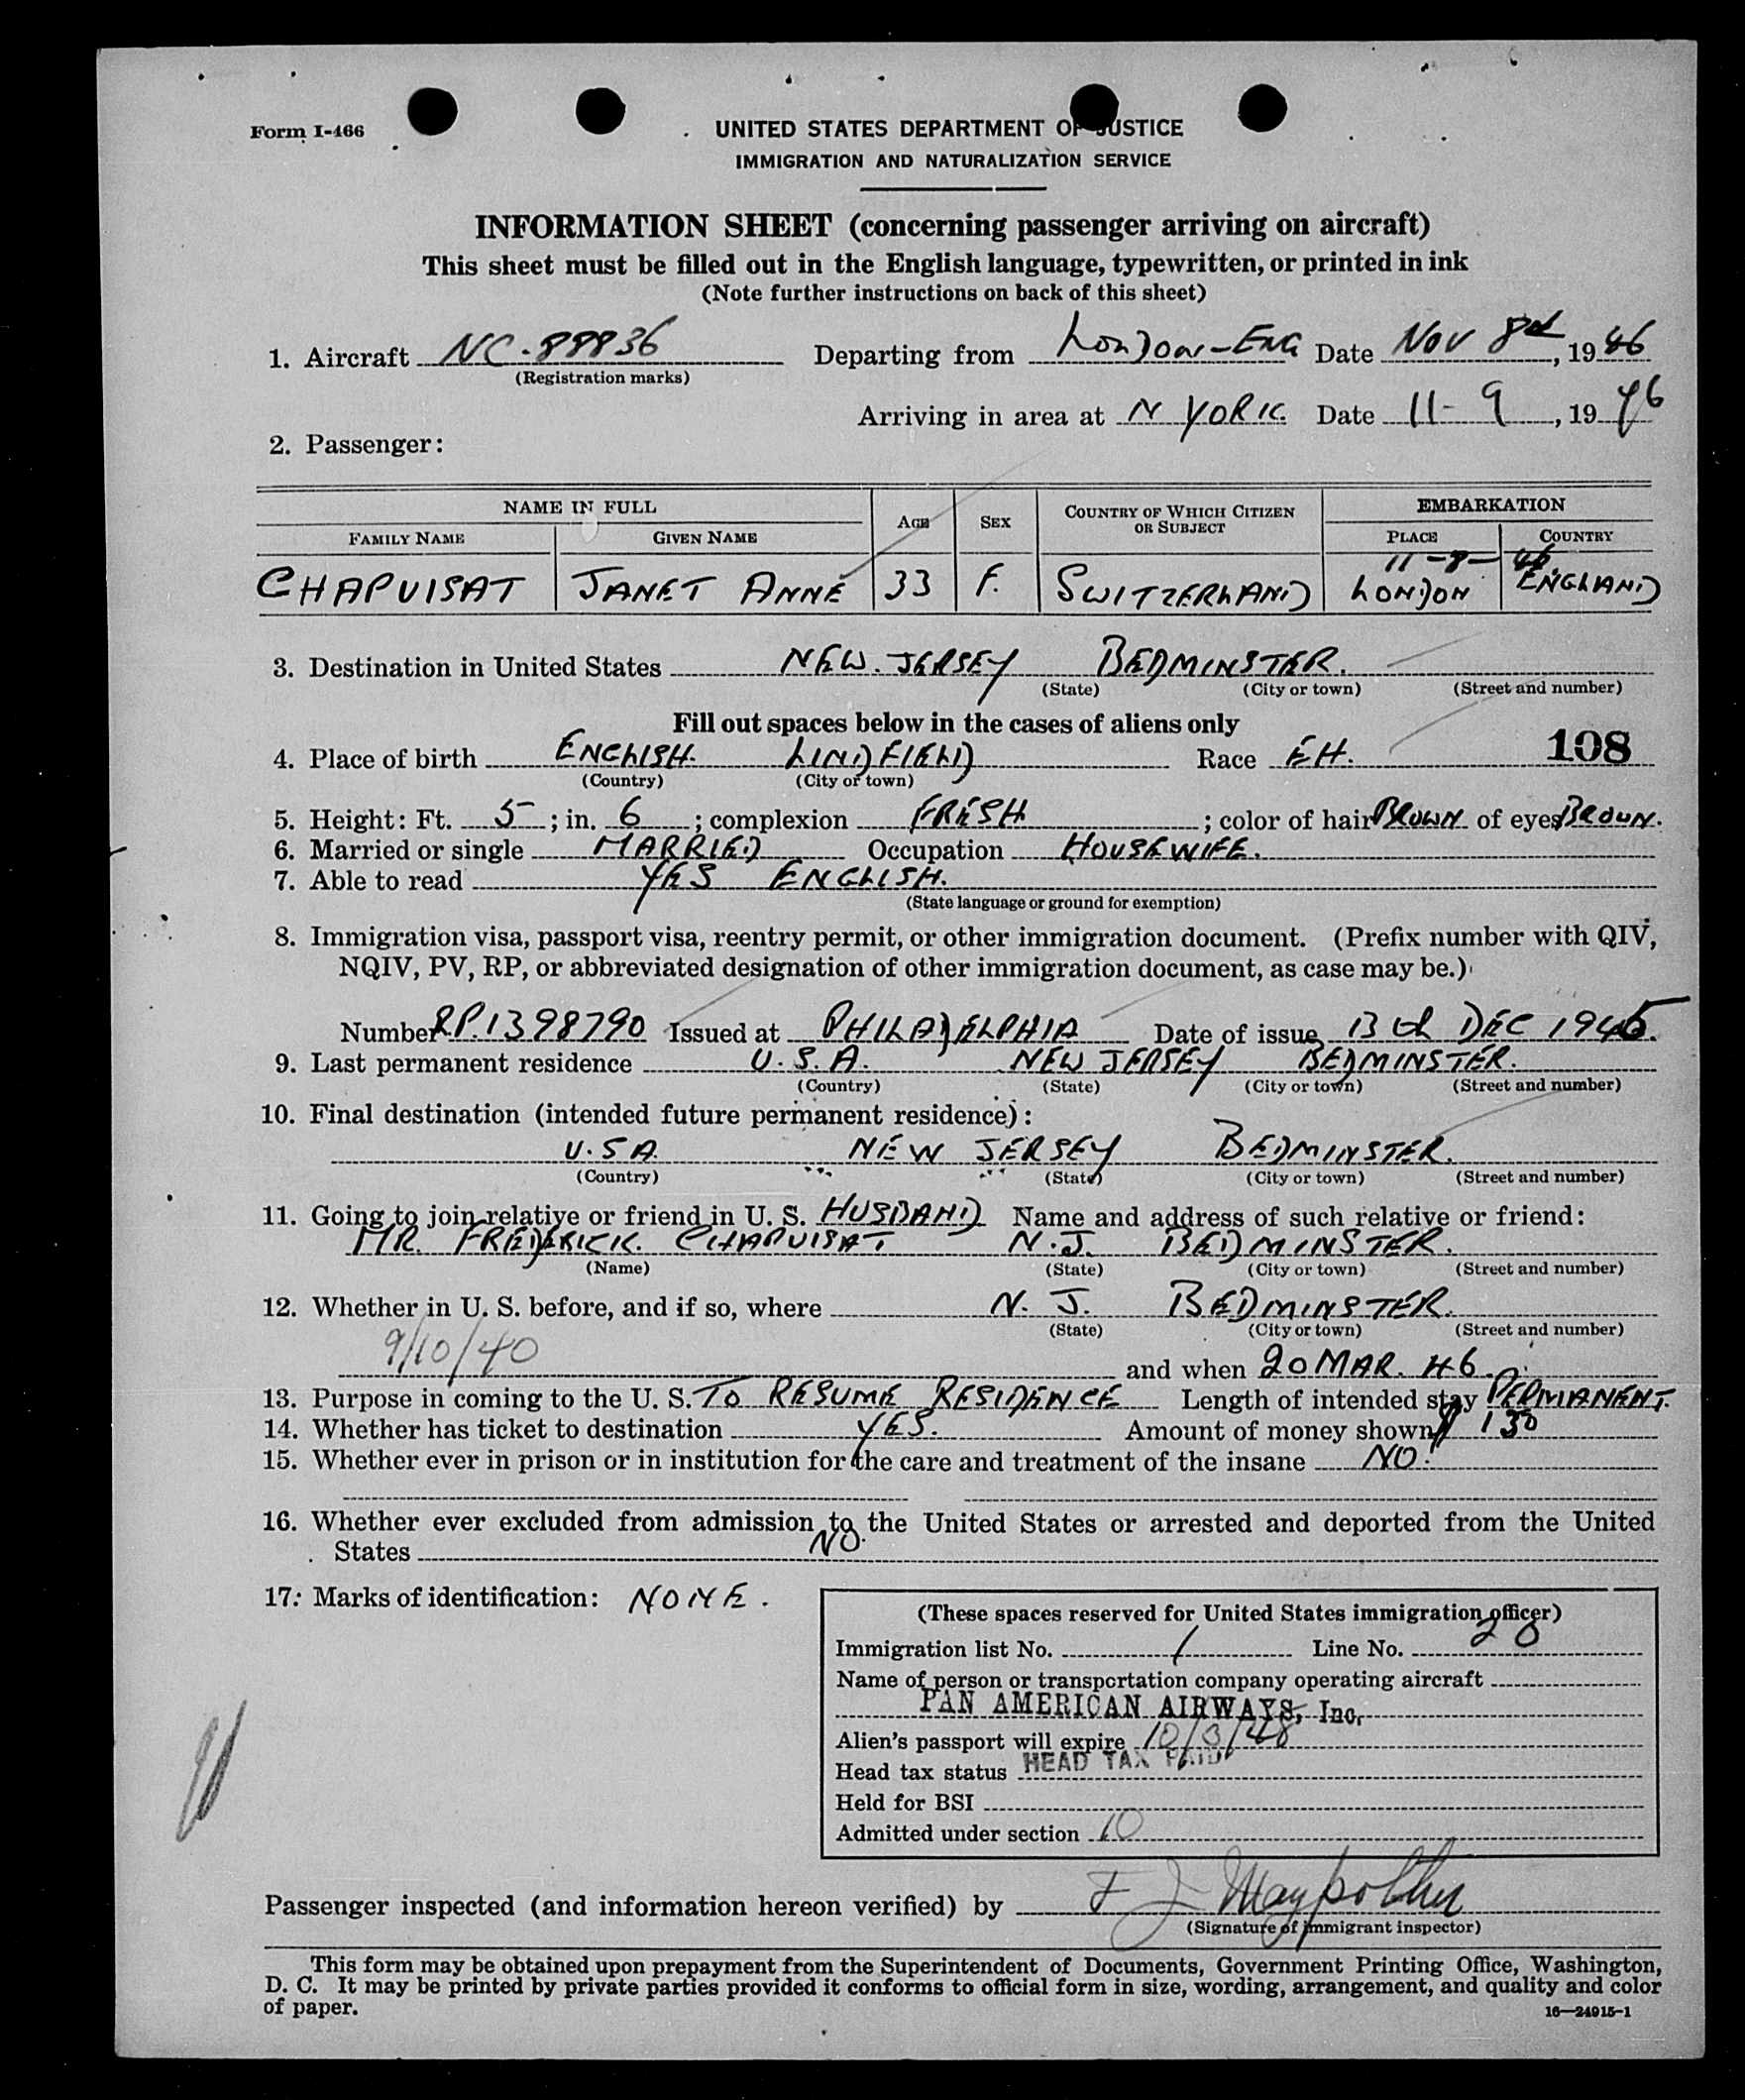 Form I-466
UNITED STATES DEPARTMENT OF JUSTICE
IMMIGRATION AND NATURALIZATION SERVICE
INFORMATION SHEET (concerning passenger arriving on aircraft)
This sheet must be filled out in the English language, typewritten, or printed in ink
(Note further instructions on back of this sheet)
1. Aircraft NC-88836 Departing from LONDON-ENG Date NOV 8th, 1946
(Registration marks)
Arriving in area at N YORK. Date 11-9, 1946
2. Passenger:
NAME IN FULL AGE SEX COUNTRY OF WHICH CITIZEN OR SUBJECT EMBARKATION
FAMILY NAME GIVEN NAME PLACE COUNTRY
11-8-46.
CHAPUISAT JANET ANNE 33 F. SWITZERLAND LONDON ENGLAND
3. Destination in United States NEW. JERSEY BEDMINSTER.
(State) (City or town) (Street and number)
Fill out spaces below in the cases of aliens only
4. Place of birth ENGLISH. LINDFIELD Race EH. 108
(Country) (City or town)
5. Height: Ft. 5; in. 6; complexion FRESH; color of hair BROWN of eyes BROWN.
6. Married or single MARRIED Occupation HOUSEWIFE.
7. Able to read YES ENGLISH.
(State language or ground for exemption)
8. Immigration visa, passport visa, reentry permit, or other immigration document. (Prefix number with QIV,
NQIV, PV, RP, or abbreviated designation of other immigration document, as case may be.)
Number RP.1398790 Issued at PHILADELPHIA Date of issue 13th DEC 1945.
9. Last permanent residence U.S.A. NEW JERSEY BEDMINSTER.
(Country) (State) (City or town) (Street and number)
10. Final destination (intended future permanent residence):
U.S.A. NEW JERSEY BEDMINSTER.
(Country) (State) (City or town) (Street and number)
11. Going to join relative or friend in U. S. HUSBAND Name and address of such relative or friend:
MR. FREDERICK. CHAPUISAT N.J. BEDMINSTER.
(Name) (State) (City or town) (Street and number)
12. Whether in U. S. before, and if so, where N. J. BEDMINSTER.
(State) (City or town) (Street and number)
9/10/40 and when 20 MAR. 46.
13. Purpose in coming to the U. S. TO RESUME RESIDENCE Length of intended stay PERMANENT.
14. Whether has ticket to destination YES. Amount of money shown $ 130
15. Whether ever in prison or in institution for the care and treatment of the insane NO.
16. Whether ever excluded from admission to the United States or arrested and deported from the United
States NO.
17. Marks of identification: NONE.
(These spaces reserved for United States immigration officer)
Immigration list No. 1 Line No. 20
Name of person or transportation company operating aircraft
PAN AMERICAN AIRWAYS, Inc.
Alien's passport will expire 10/3/48
Head tax status HEAD TAX PAID
Held for BSI
Admitted under section 10
Passenger inspected (and information hereon verified) by F J Maypother
(Signature of immigrant inspector)
This form may be obtained upon prepayment from the Superintendent of Documents, Government Printing Office, Washington,
D. C. It may be printed by private parties provided it conforms to official form in size, wording, arrangement, and quality and color
of paper.
16—24915-1